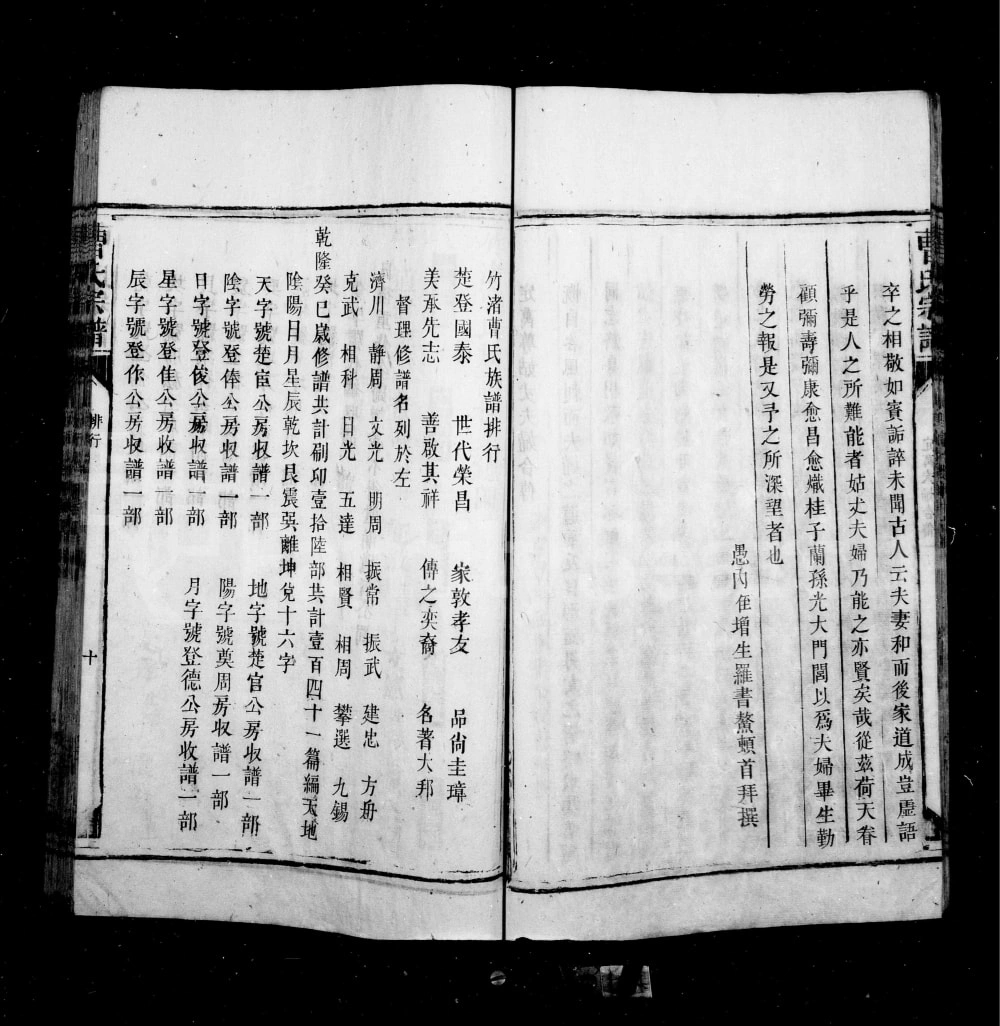 曹氏宗譜
卒之相敬如賓詬誶未聞古人云夫妻和而後家道成豈虛語
乎是人之所難能者姑丈夫婦乃能之亦賢矣哉從茲荷天眷
顧彌壽彌康愈昌愈熾桂子蘭孫光大門閭以爲夫婦畢生勤
勞之報是又予之所深望者也
愚內侄增生羅書鰲頓首拜撰
竹渚曹氏族譜排行
楚登國泰 世代榮昌 家敦孝友 品尙圭璋
美承先志 善啟其祥 傳之奕裔 名著大邦
督理修譜名列於左
濟川 靜周 文光 明周 振常 振武 建忠 方舟
克武 相科 日光 五達 相賢 相周 攀選 九錫
乾隆癸巳歲修譜共計刷印壹拾陸部共計壹百四十一篇編天地
陰陽日月星辰乾坎艮震巽離坤兌十六字
天字號楚宦公房收譜一部 地字號楚官公房收譜一部
陰字號登俸公房收譜一部 陽字號奠周房收譜一部
日字號登俊公房收譜一部 月字號登德公房收譜一部
星字號登隹公房收譜一部
辰字號登作公房收譜一部
曹氏宗譜
排行
十